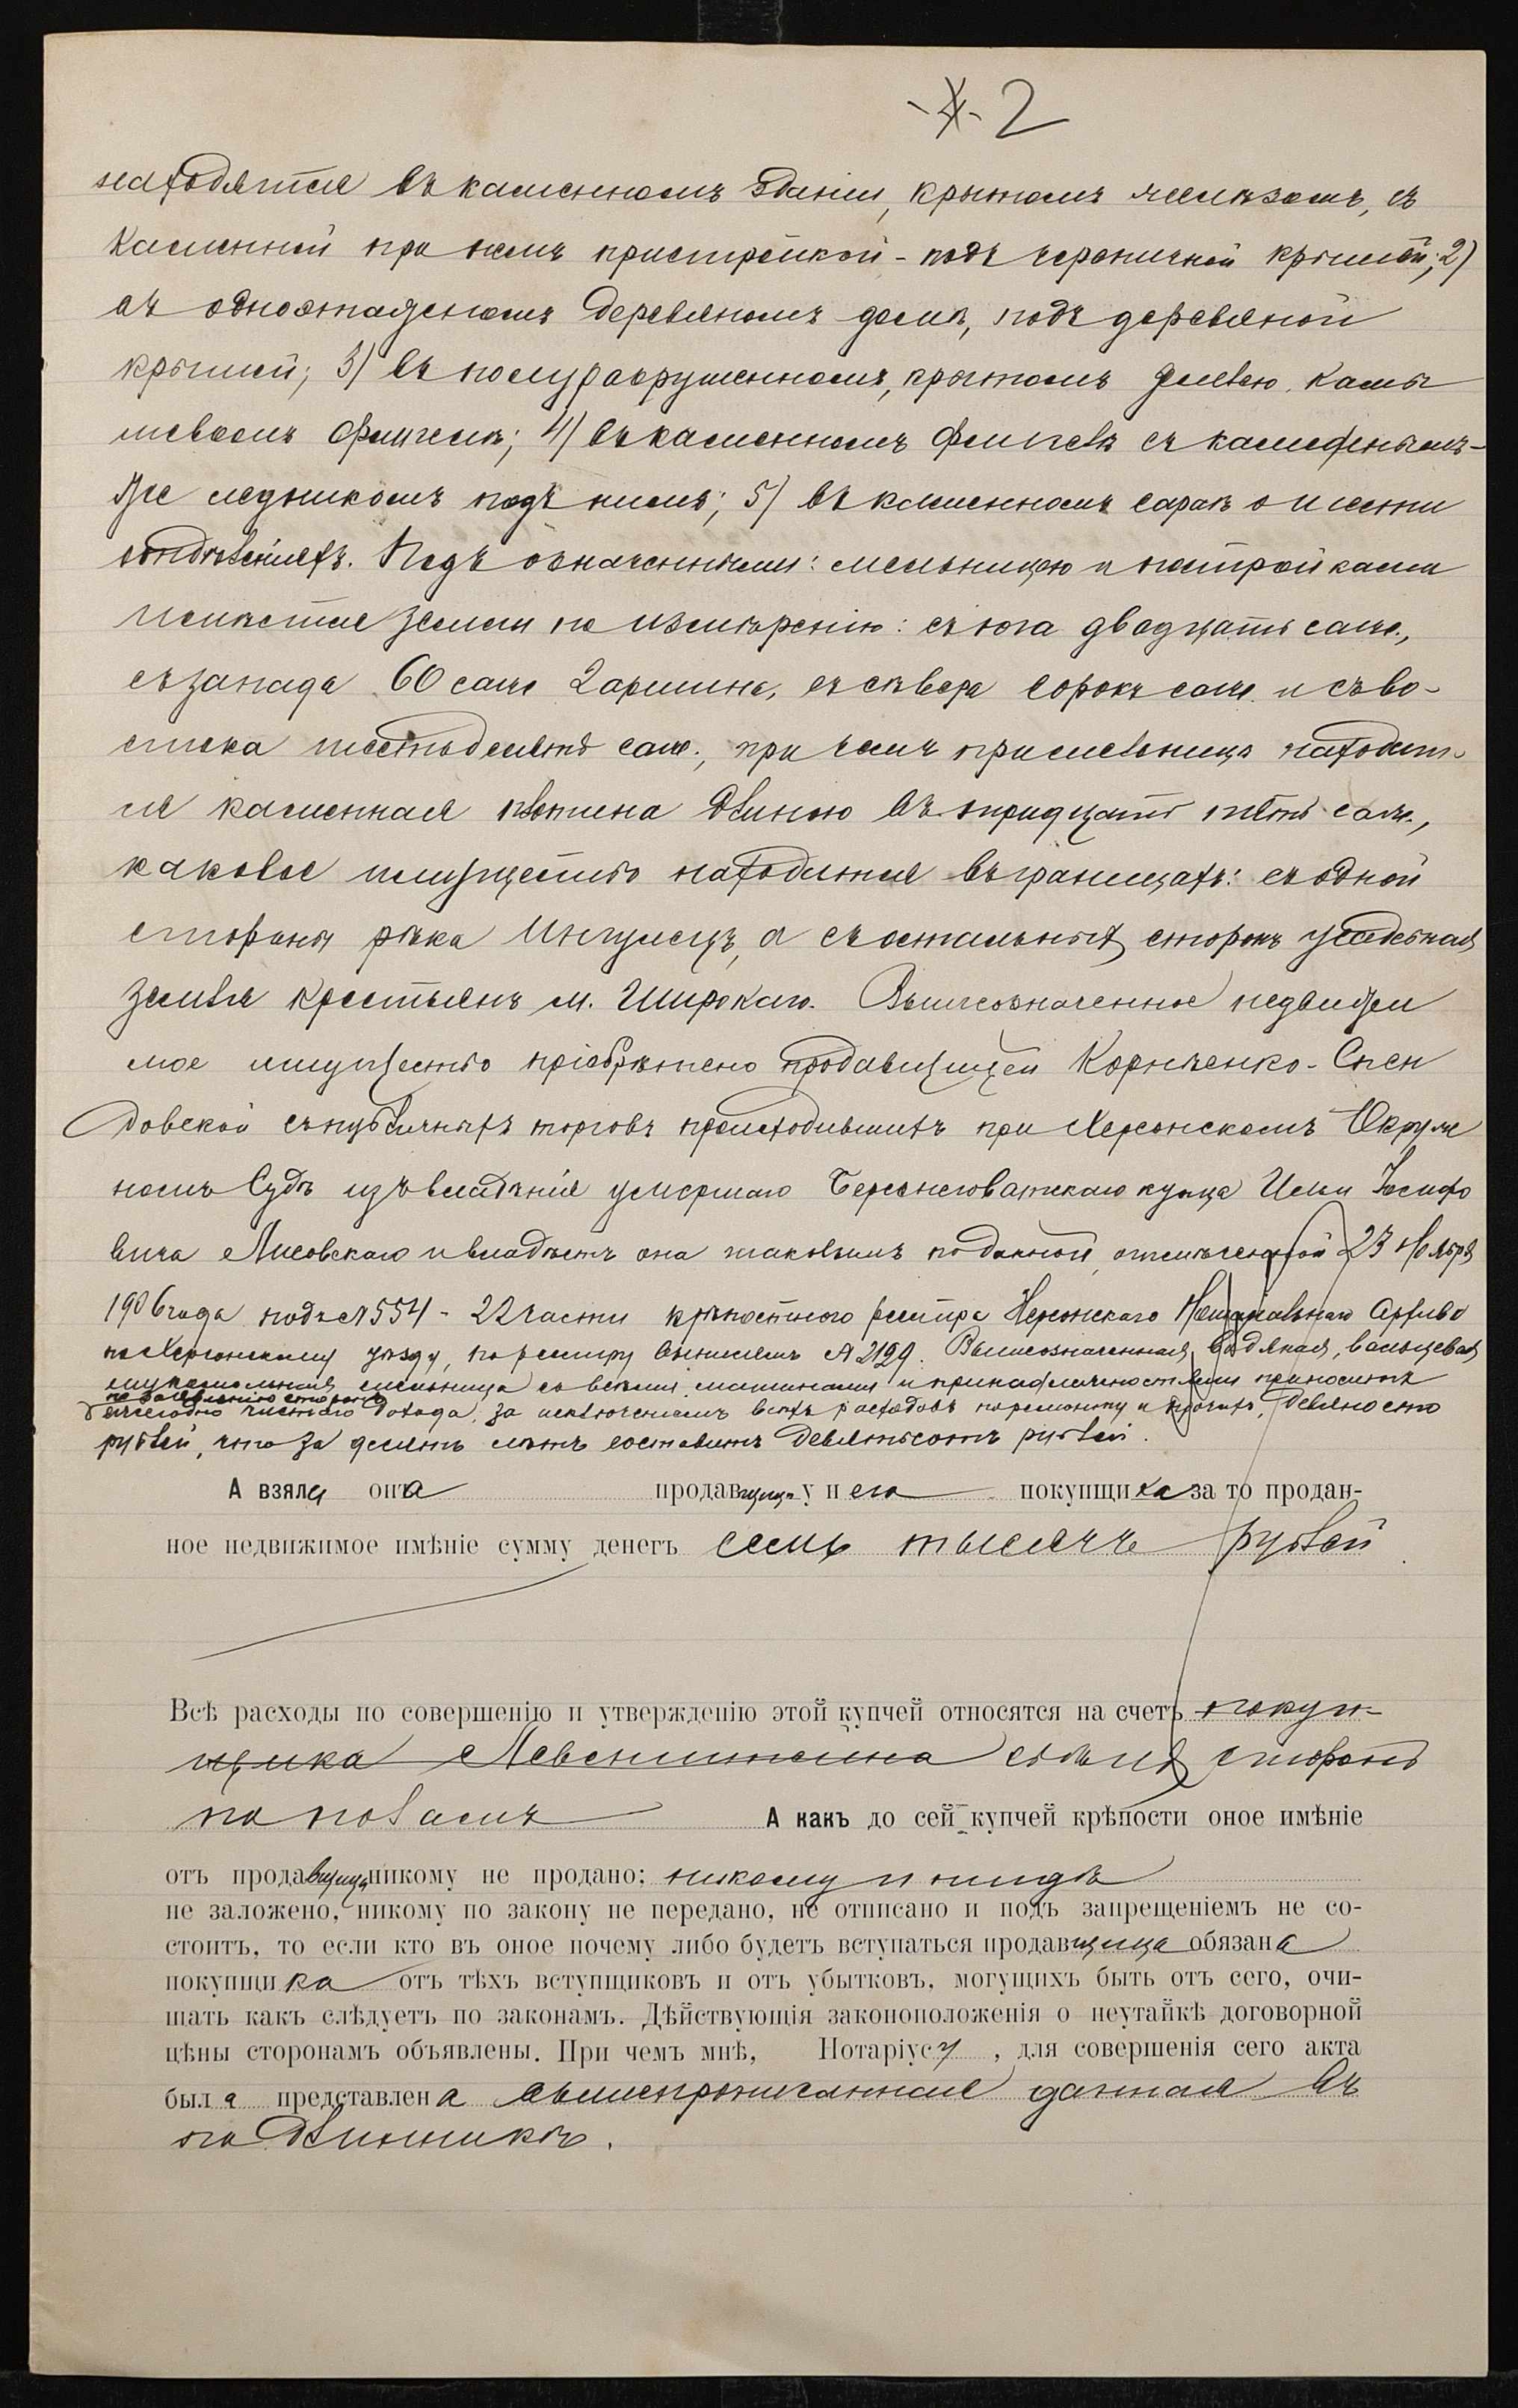 2
находятся въ каменномъ зданіи, крытомъ желѣзомъ, съ
каменной при немъ пристройкой - подъ черепичной крышей; 2)
въ одноэтажномъ деревяномъ домѣ, подъ деревяной
крышей; 3) въ полуразрушенномъ, крытомъ землею, камы
шевомъ флигелѣ; 4) въ каменномъ флигелѣ съ каменнымъ-
же ледникомъ подъ нимъ; 5) въ каменномъ сараѣ о шести
отдѣленіяхъ. Подъ означенными: мельницею и постройками
имѣется земли по измѣренію: съ юга двадцать саж.,
съ запада 60 саж 2 аршина, съ сѣвера сорокъ саж. и съ во-
стока шестьдесятъ саж., при чемъ при мельницѣ находит-
ся каменная плотина длиною въ тридцать пять саж.,
каковое имущество находится въ границахъ: съ одной
стороны рѣка Ингулецъ, а съ остальныхъ сторонъ усадебная
земля крестьянъ м. Широкаго. Вышеозначенное недвижи
мое имущество пріобрѣтено продавщицей Корніенко-
довской съ публичныхъ торговъ происходившихъ при Херсонскомъ Окруж
номъ Судѣ изъ владѣнія умершаго Береснеговатскаго купца Ильи Іосифо
вича Лисовскаго и владѣетъ она таковымъ по данной, отмѣченной 23 Ноября
1906 года подъ № 554 - 22 части крѣпостного реестра Херсонскаго Нотаріальнаго Архива
по Херсонскому уѣзду, по реестру выписей № 2129. Вышеозначенная водяная, вальцевая
мукомольная мельница со всѣми машинами и принадлежностями приноситъ
по заявленію сторонъ
ежегодно чистаго дохода, за исключеніемъ всѣхъ расходовъ по ремонту и прочихъ, девяносто
рублей, что за десять лѣтъ составитъ девятьсотъ рублей.
А взяла она продавщица у него покупщика за то продан-
ное недвижимое имѣніе сумму денегъ семь тысячъ рублей
Всѣ расходы по совершенію и утвержденію этой купчей относятся на счетъ покуп-
щика Левенштейна обѣихъ сторонъ
по поламъ А какъ до сей купчей крѣпости оное имѣніе
отъ продавщицы никому не продано; никому и нигдѣ
не заложено, никому по закону не передано, не отписано и подъ запрещеніемъ не со-
стоитъ, то если кто въ оное почему либо будетъ вступаться продавщица обязана
покупщика отъ тѣхъ вступщиковъ и отъ убытковъ, могущихъ быть отъ сего, очи-
щать какъ слѣдуетъ по законамъ. Дѣйствующія законоположенія о неутайкѣ договорной
цѣны сторонамъ объявлены. При чемъ мнѣ, Нотаріусу, для совершенія сего акта
была представлена вышепрописанная данная въ
подлинникѣ.